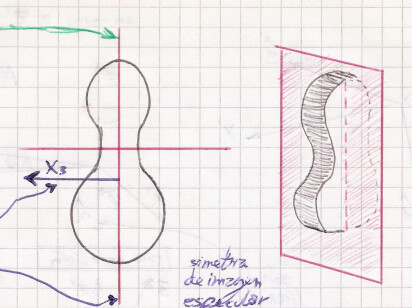 X₃
simetria
de imagen
especular